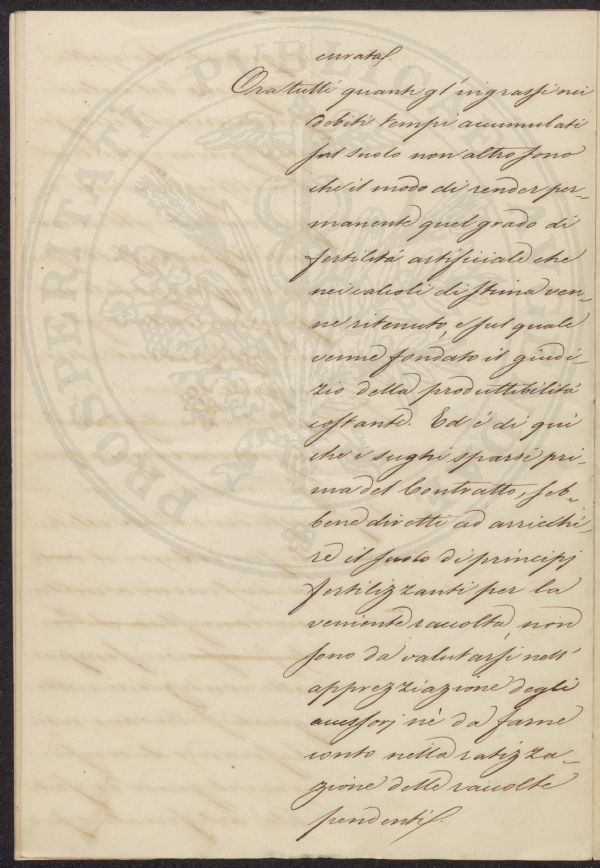 curata.
Ora tutti quanti gl'ingrassi nei
debiti tempi accumulati
sul suolo non altro sono
che il modo di render per-
manente quel grado di
fertilità artificiale che
nei calcoli di stima ven-
ne ritenuto, e sul quale
venne fondato il giudi-
zio della produttibilità
costante. Ed è di quì
che i sughi sparsi pri-
ma del Contratto, seb-
bene diretti ad arricchi-
re il suolo di principj
fertilizzanti per la
veniente raccolta, non
sono da valutarsi nell'
apprezziazione degli
accessorj nè da farne
conto nella ratizza-
zione delle raccolte
pendenti.
PROSPERITATI PVBLICAE